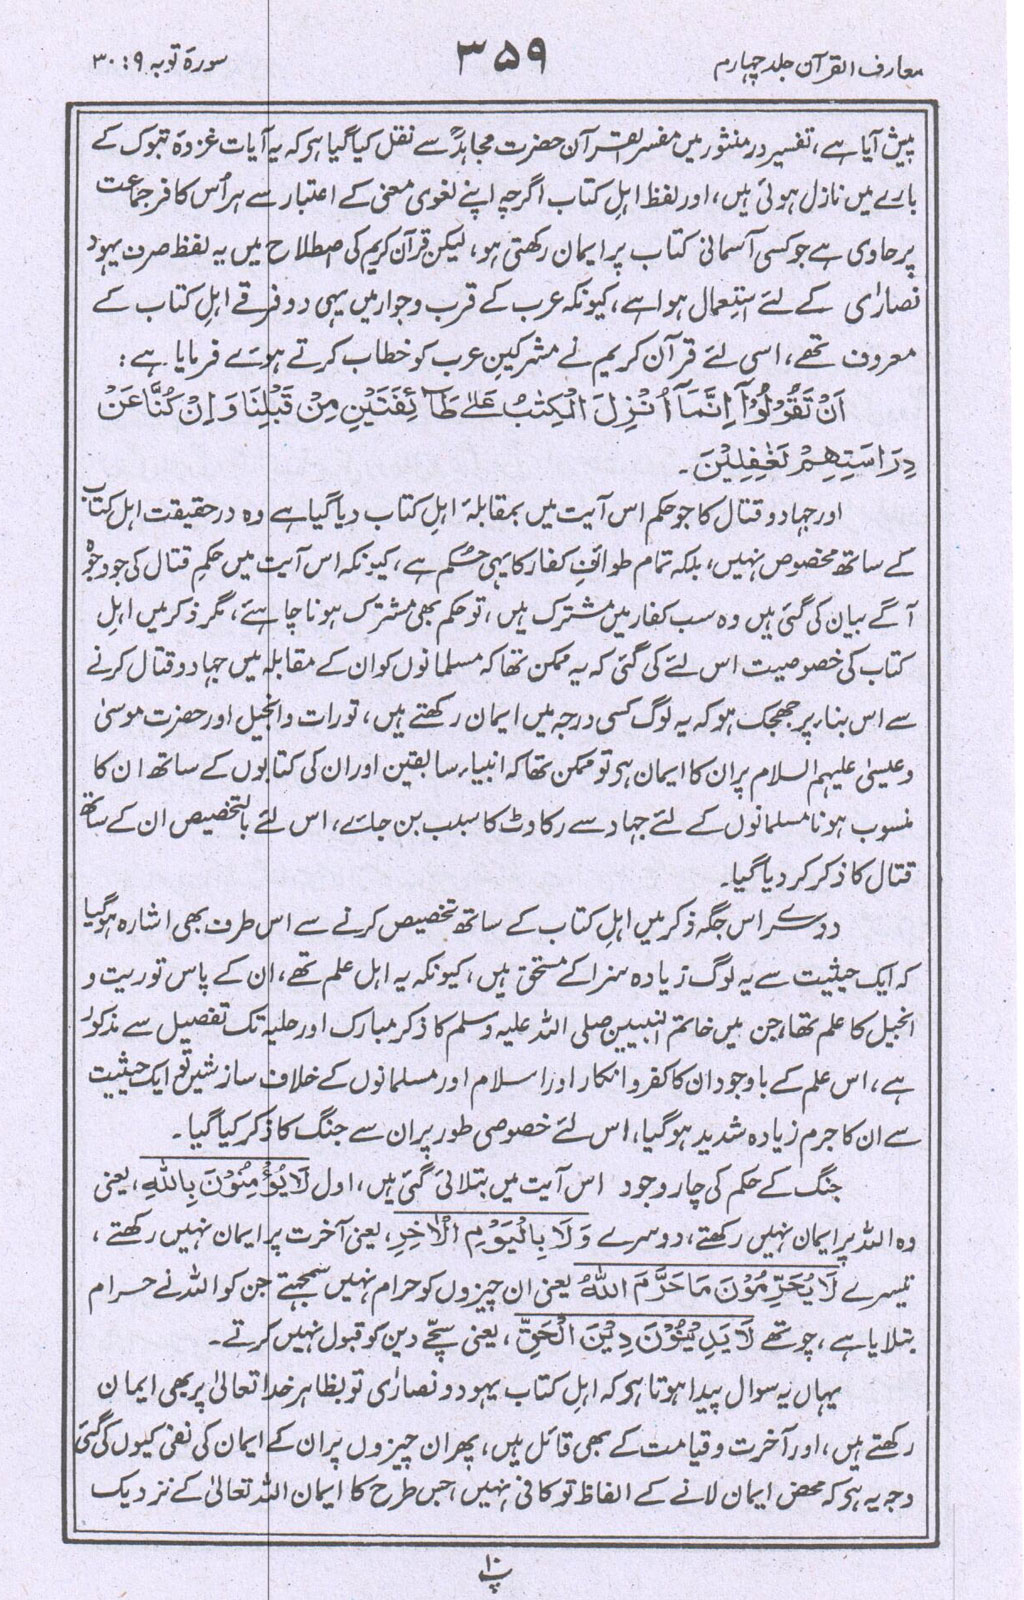 معارف القرآن جلد چہارم
۳۵۹
سورۃ توبہ ۹ : ۳۰
پیش آیا ہے، تفسیر در منثور میں مفسر القرآن حضرت مجاہدؒ سے نقل کیا گیا ہو کہ یہ آیات غزوۂ تبوک کے
بارے میں نازل ہوئی ہیں، اور لفظ اہل کتاب اگرچہ اپنے لغوی معنی کے اعتبار سے ہر اُس کافر جماعت
پر حاوی ہے جو کسی آسمانی کتاب پر ایمان رکھتی ہو، لیکن قرآن کریم کی اصطلاح میں یہ لفظ صرف یہود
نصاریٰ کے لئے استعمال ہوا ہے، کیونکہ عرب کے قرب و جوار میں یہی دو فرقے اہلِ کتاب کے
معروف تھے، اسی لئے قرآن کریم نے مشرکینِ عرب کو خطاب کرتے ہوئے فرمایا ہے :
اَنْ تَقُوْلُوْٓا اِنَّمَآ اُنْزِلَ الْكِتٰبُ عَلٰى طَآئِفَتَيْنِ مِنْ قَبْلِنَا وَاِنْ كُنَّا عَنْ
دِرَاسَتِهِمْ لَغٰفِلِيْنَ ۔
اور جہاد و قتال کا جو حکم اس آیت میں بمقابلۂ اہلِ کتاب دیا گیا ہے وہ درحقیقت اہل کتاب
کے ساتھ مخصوص نہیں، بلکہ تمام طوائفِ کفار کا یہی حکم ہے، کیونکہ اس آیت میں حکمِ قتال کی جو وجوہ
آگے بیان کی گئی ہیں وہ سب کفار میں مشترک ہیں، تو حکم بھی مشترک ہونا چاہئے، مگر ذکر میں اہلِ
کتاب کی خصوصیت اس لئے کی گئی کہ یہ ممکن تھا کہ مسلمانوں کو ان کے مقابلہ میں جہاد و قتال کرنے
سے اس بناء پر جھجک ہو کہ یہ لوگ کسی درجہ میں ایمان رکھتے ہیں، تورات و انجیل اور حضرت موسیٰ
و عیسیٰ علیہم السلام پر ان کا ایمان ہو تو ممکن تھا کہ انبیاء سابقین اور ان کی کتابوں کے ساتھ ان کا
منسوب ہونا مسلمانوں کے لئے جہاد سے رکاوٹ کا سبب بن جائے، اس لئے بالتخصیص ان کے ساتھ
قتال کا ذکر کر دیا گیا۔
دوسرے اس جگہ ذکر میں اہلِ کتاب کے ساتھ تخصیص کرنے سے اس طرف بھی اشارہ ہوگیا
کہ ایک حیثیت سے یہ لوگ زیادہ سزا کے مستحق ہیں، کیونکہ یہ اہل علم تھے، ان کے پاس توریت و
انجیل کا علم تھا، جن میں خاتم النبیین صلی اللہ علیہ وسلم کا ذکر مبارک اور حلیہ تک تفصیل سے مذکور
ہے، اس علم کے باوجود ان کا کفر و انکار اور اسلام اور مسلمانوں کے خلاف سازشیں تو ایک حیثیت
سے ان کا جرم زیادہ شدید ہوگیا، اس لئے خصوصی طور پر ان سے جنگ کا ذکر کیا گیا۔
جنگ کے حکم کی چار وجوہ اس آیت میں بتلائی گئی ہیں، اول لَا يُؤْمِنُوْنَ بِاللّٰهِ، یعنی
وہ اللہ پر ایمان نہیں رکھتے، دوسرے وَلَا بِالْيَوْمِ الْاٰخِرِ، یعنی آخرت پر ایمان نہیں رکھتے،
تیسرے لَا يُحَرِّمُوْنَ مَا حَرَّمَ اللّٰهُ یعنی ان چیزوں کو حرام نہیں سمجھتے جن کو اللہ نے حرام
بتلایا ہے، چوتھے لَا يَدِيْنُوْنَ دِيْنَ الْحَقِّ، یعنی سچے دین کو قبول نہیں کرتے۔
یہاں یہ سوال پیدا ہوتا ہو کہ اہلِ کتاب یہود و نصاریٰ تو بظاہر خدا تعالیٰ پر بھی ایمان
رکھتے ہیں، اور آخرت و قیامت کے بھی قائل ہیں، پھر ان چیزوں پر ان کے ایمان کی نفی کیوں کی گئی
وجہ یہ ہو کہ محض ایمان لانے کے الفاظ تو کافی نہیں، جس طرح کا ایمان اللہ تعالیٰ کے نزدیک